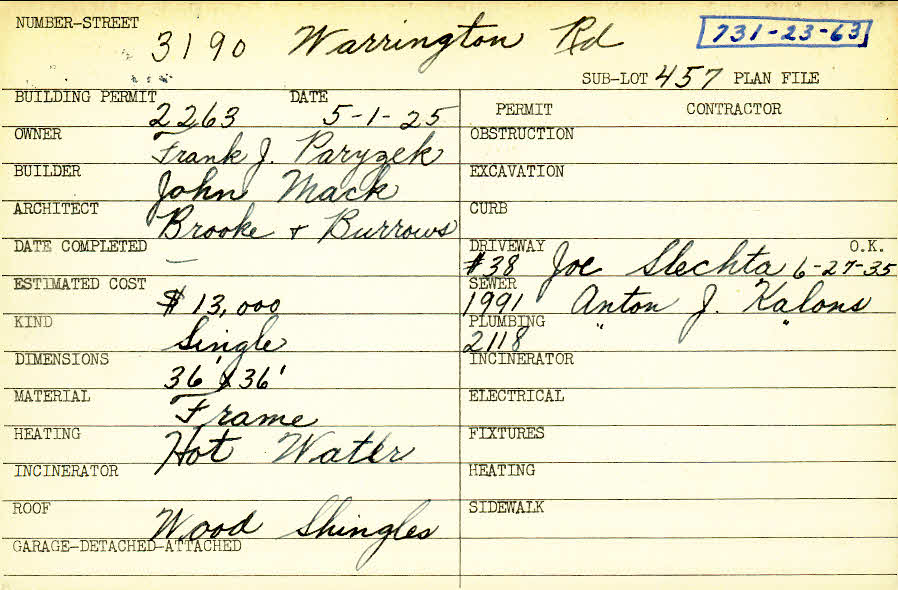 NUMBER-STREET 3190 Warrington Rd 731-23-63
SUB-LOT 457 PLAN FILE
BUILDING PERMIT 2263 DATE 5-1-25
OWNER Frank J. Paryzek
BUILDER John Mack
ARCHITECT Brooke + Burrows
DATE COMPLETED —
ESTIMATED COST $13,000
KIND Single
DIMENSIONS 36' x 36'
MATERIAL Frame
HEATING Hot Water
INCINERATOR
ROOF Wood Shingles
GARAGE-DETACHED-ATTACHED
PERMIT CONTRACTOR
OBSTRUCTION
EXCAVATION
CURB
DRIVEWAY #38 Joe Slechta O.K. 6-27-35
SEWER 1991 Anton J. Kalons
PLUMBING 2118 " "
INCINERATOR
ELECTRICAL
FIXTURES
HEATING
SIDEWALK